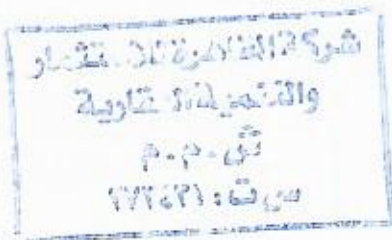 شركة القاهرة للاستثمار
والتنمية العقارية
ش.م.م
س.ت: ٢٧٢٤٢١